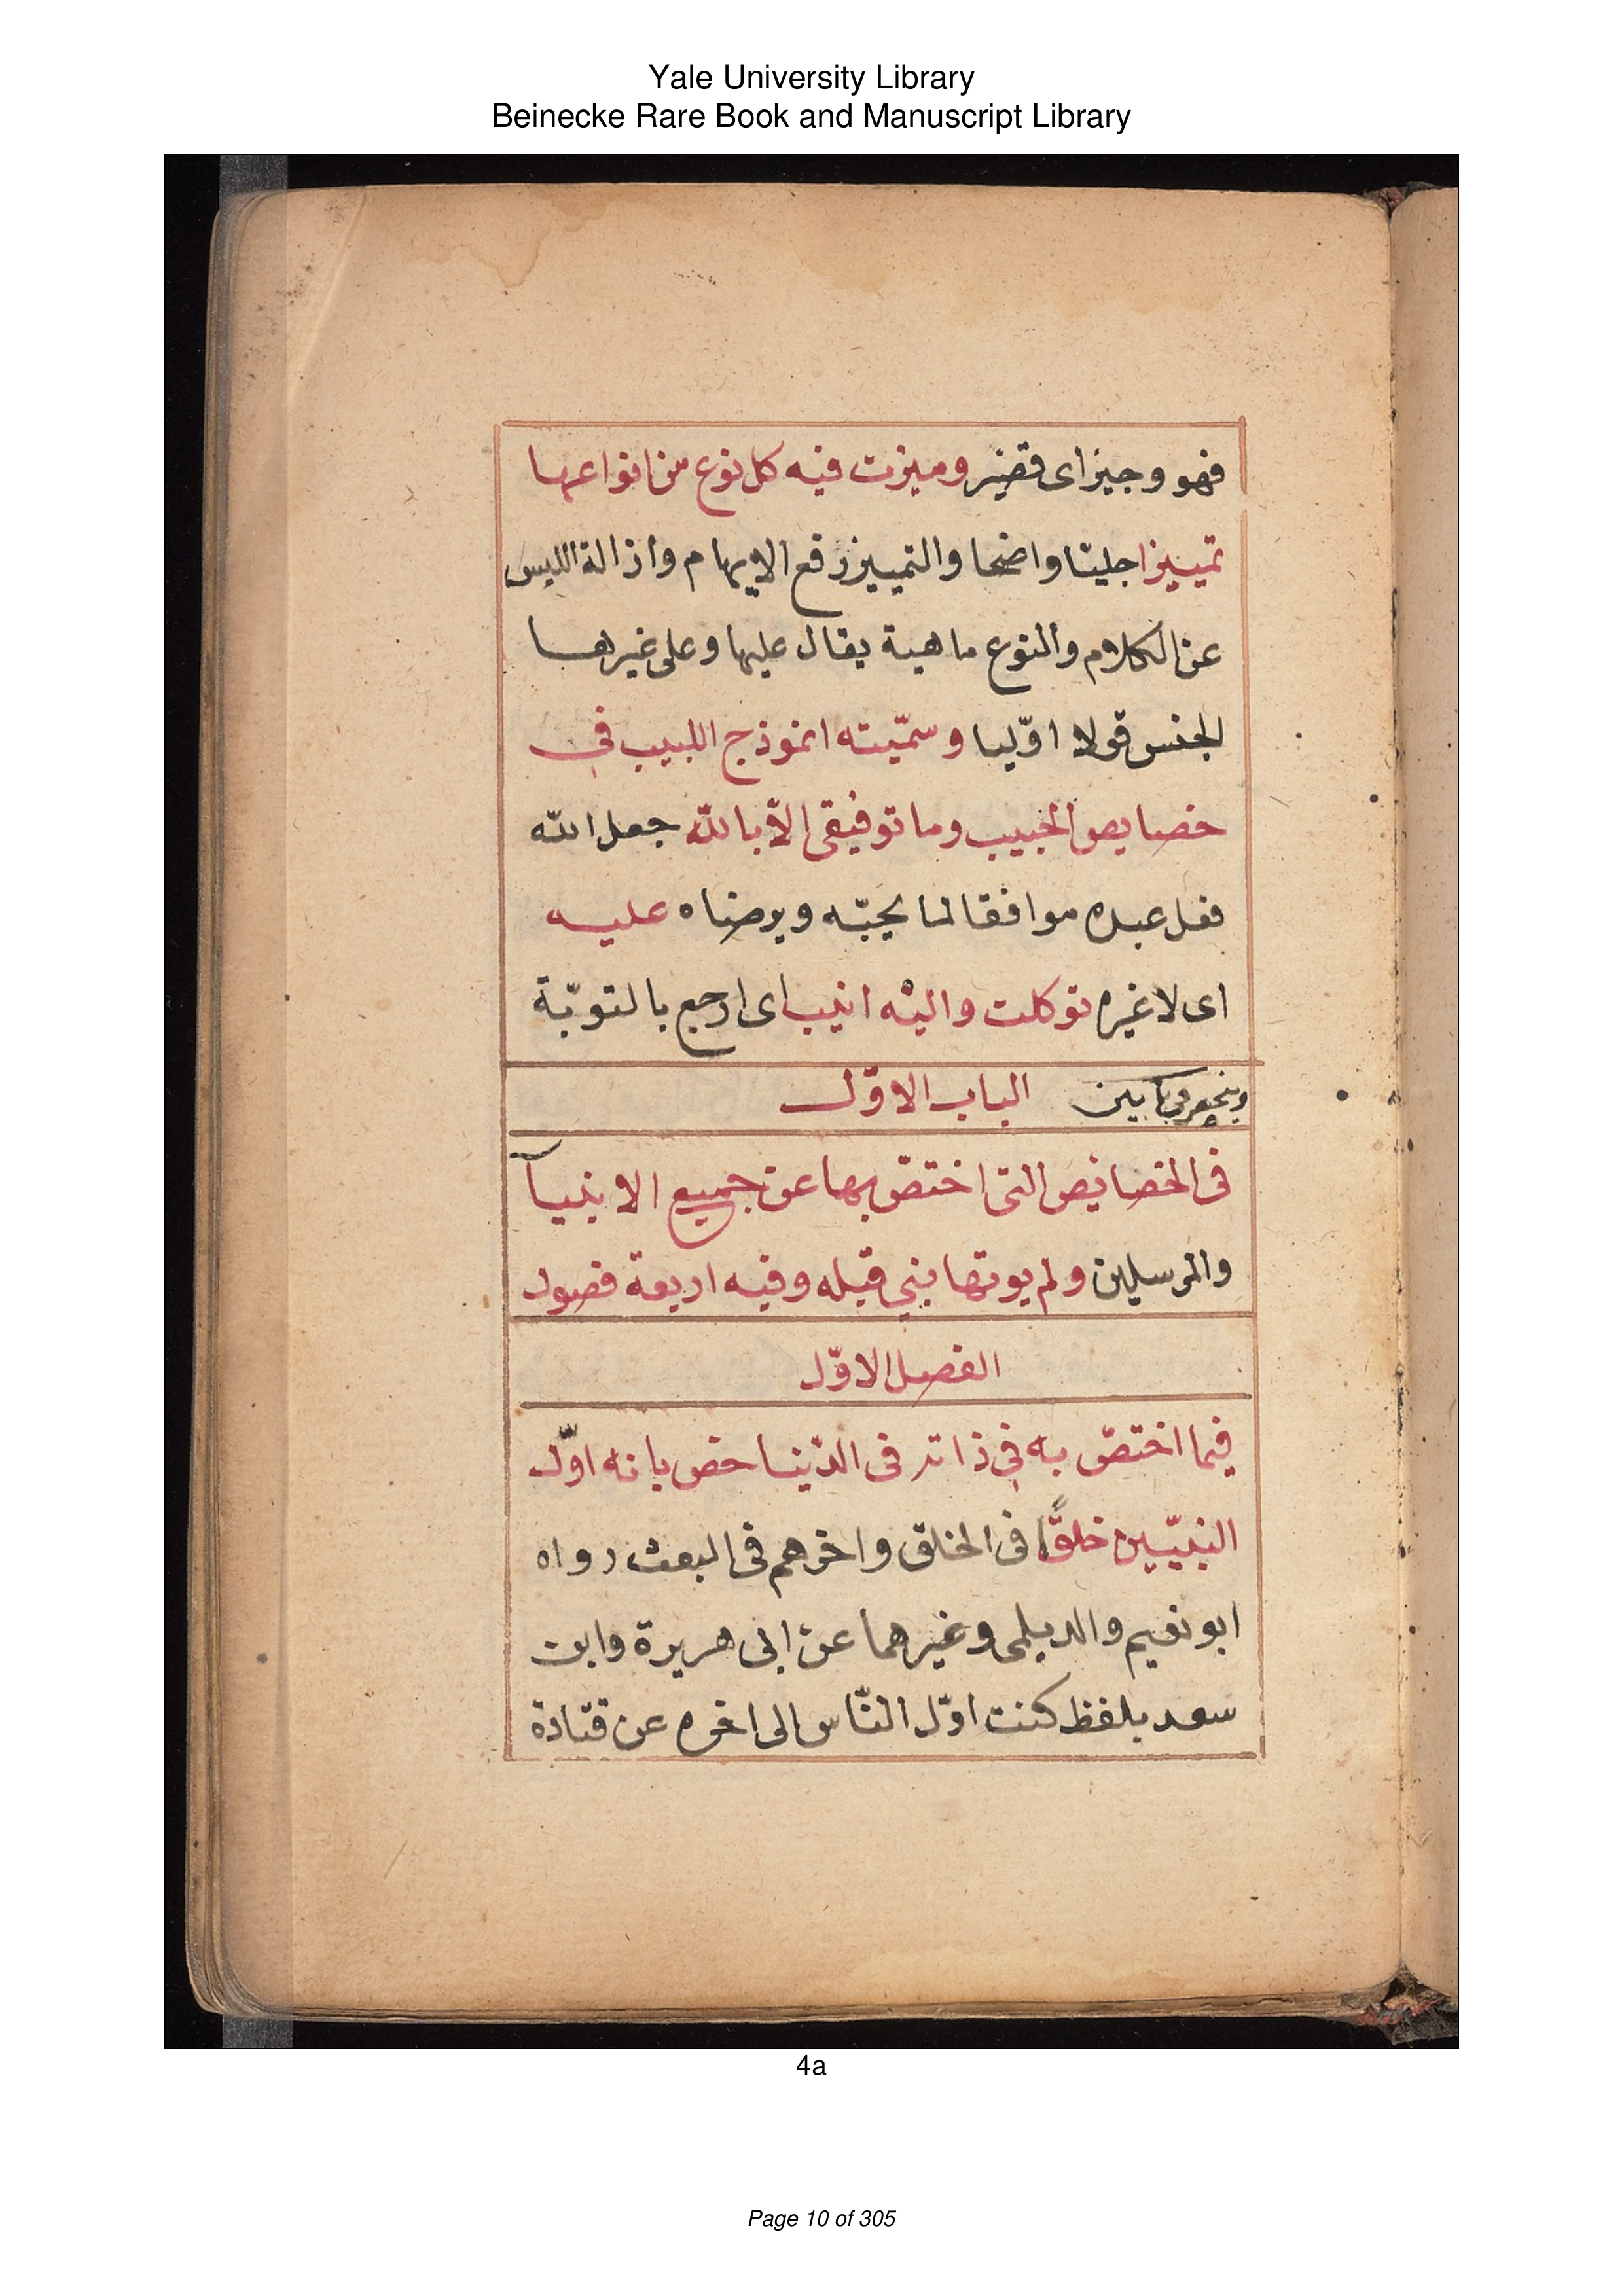 Yale University Library
Beinecke Rare Book and Manuscript Library
فهو وجيز اى قصير وميزت فيه كل نوع من انواعها
تمييزا جليّا واضحا والتمييز رفع الايهام وازالة اللبس
عن الكلام والنوع ماهية يقال عليها وعلى غيرها
الجنس قولا اوّليا وسمّيته انموذج اللبيب فى
خصايص الحبيب وما توفيقى الاّ بالله جعل الله
فعل عبده موافقا لما يحبّه ويرضاه عليه
اى لا غيره توكلت واليْه انيب اى ارجع بالتوبّة
وينحصر فى بابين الباب الاوّل
فى الخصائص التى اختصّ بها عن جميع الانبيآ
والمرسلين ولم يوتها نبي قبله وفيه اربعة فصول
الفصل الاوّل
فيما اختصّ به فى ذاته فى الدّنيا خص بانه اوّل
النبيّين خلقًا فى الخلق واخرهم فى البعث رواه
ابو نعيم والديلمى وغيرهما عن ابى هريرة وابن
سعد بلفظ كنت اوّل النّاس الى اخره عن قتادة
4a
Page 10 of 305